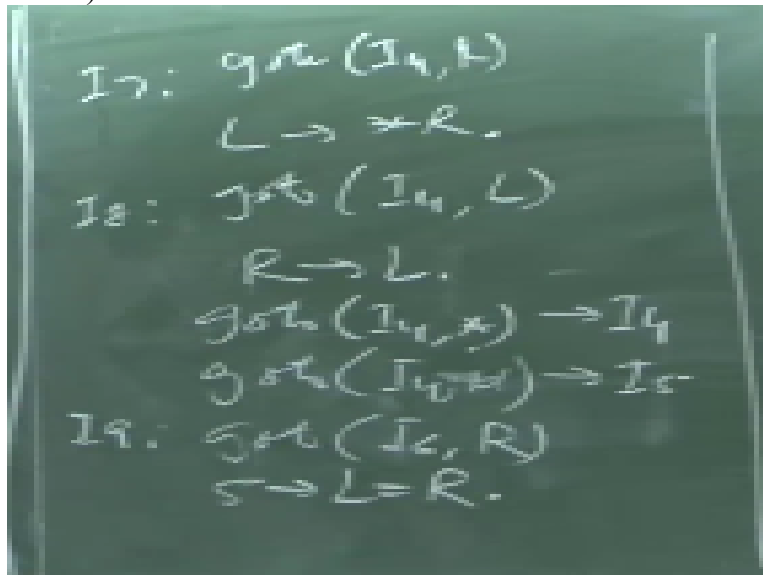 I7: goto (I4, R)
L → *R.
I8: goto (I4, L)
R → L.
goto (I4, *) → I4
goto (I4, id) → I5
I9: goto (I6, R)
S → L = R.